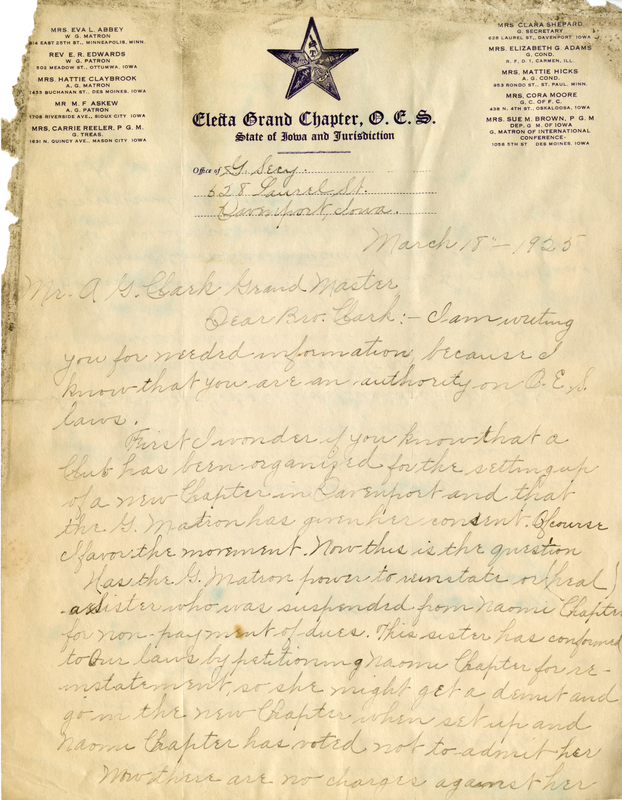 MRS. EVA L. ABBEY
W. G. MATRON
814 EAST 25TH ST., MINNEAPOLIS, MINN.
REV. E. R. EDWARDS
W G. PATRON
502 MEADOW ST., OTTUMWA, IOWA
MRS. HATTIE CLAYBROOK
A. G. MATRON
1435 BUCHANAN ST., DES MOINES, IOWA
MR M. F. ASKEW
A. G. PATRON
1708 RIVERSIDE AVE., SIOUX CITY IOWA
MRS. CARRIE REELER, P G. M.
G. TREAS.
1631 N. QUINCY AVE., MASON CITY, IOWA
MRS. CLARA SHEPARD
G. SECRETARY
628 LAUREL ST., DAVENPORT, IOWA
MRS. ELIZABETH G. ADAMS
G. COND.
R. F. D. 1, CARMEN, ILL.
MRS. MATTIE HICKS
A. G. COND.
953 RONDO ST., ST. PAUL, MINN.
MRS. CORA MOORE
G. C. OF F. C.
439 N. 4TH ST., OSKALOOSA, IOWA
MRS. SUE M. BROWN, P G M
DEP. G. M. OF IOWA
G. MATRON OF INTERNATIONAL
CONFERENCE
1058 5TH ST DES MOINES, IOWA
Electa Grand Chapter, O. E. S.
State of Iowa and Jurisdiction
Office of G. Secy.
528 Laurel St.
Davenport, Iowa.
March 18 - 1925
Mr. A G. Clark Grand Master
Dear Bro. Clark: - I am writing
you for needed information, because I
know that you are an authority on O. E. S.
laws.
First I wonder if you know that a
Club has been organized for the setting up
of a new Chapter in Davenport and that
the G. Matron has given her consent. Of course
I favor the movement. Now this is the question
Has the G. Matron power to reinstate or (heal)
a sister who was suspended from Naomi Chapter
for non-payment of dues. This sister has conformed
to our laws by petitioning Naomi Chapter for re-
instatement, so she might get a demit and
go in the new Chapter when set up and
Naomi Chapter has voted not to admit her
Now there are no charges against her